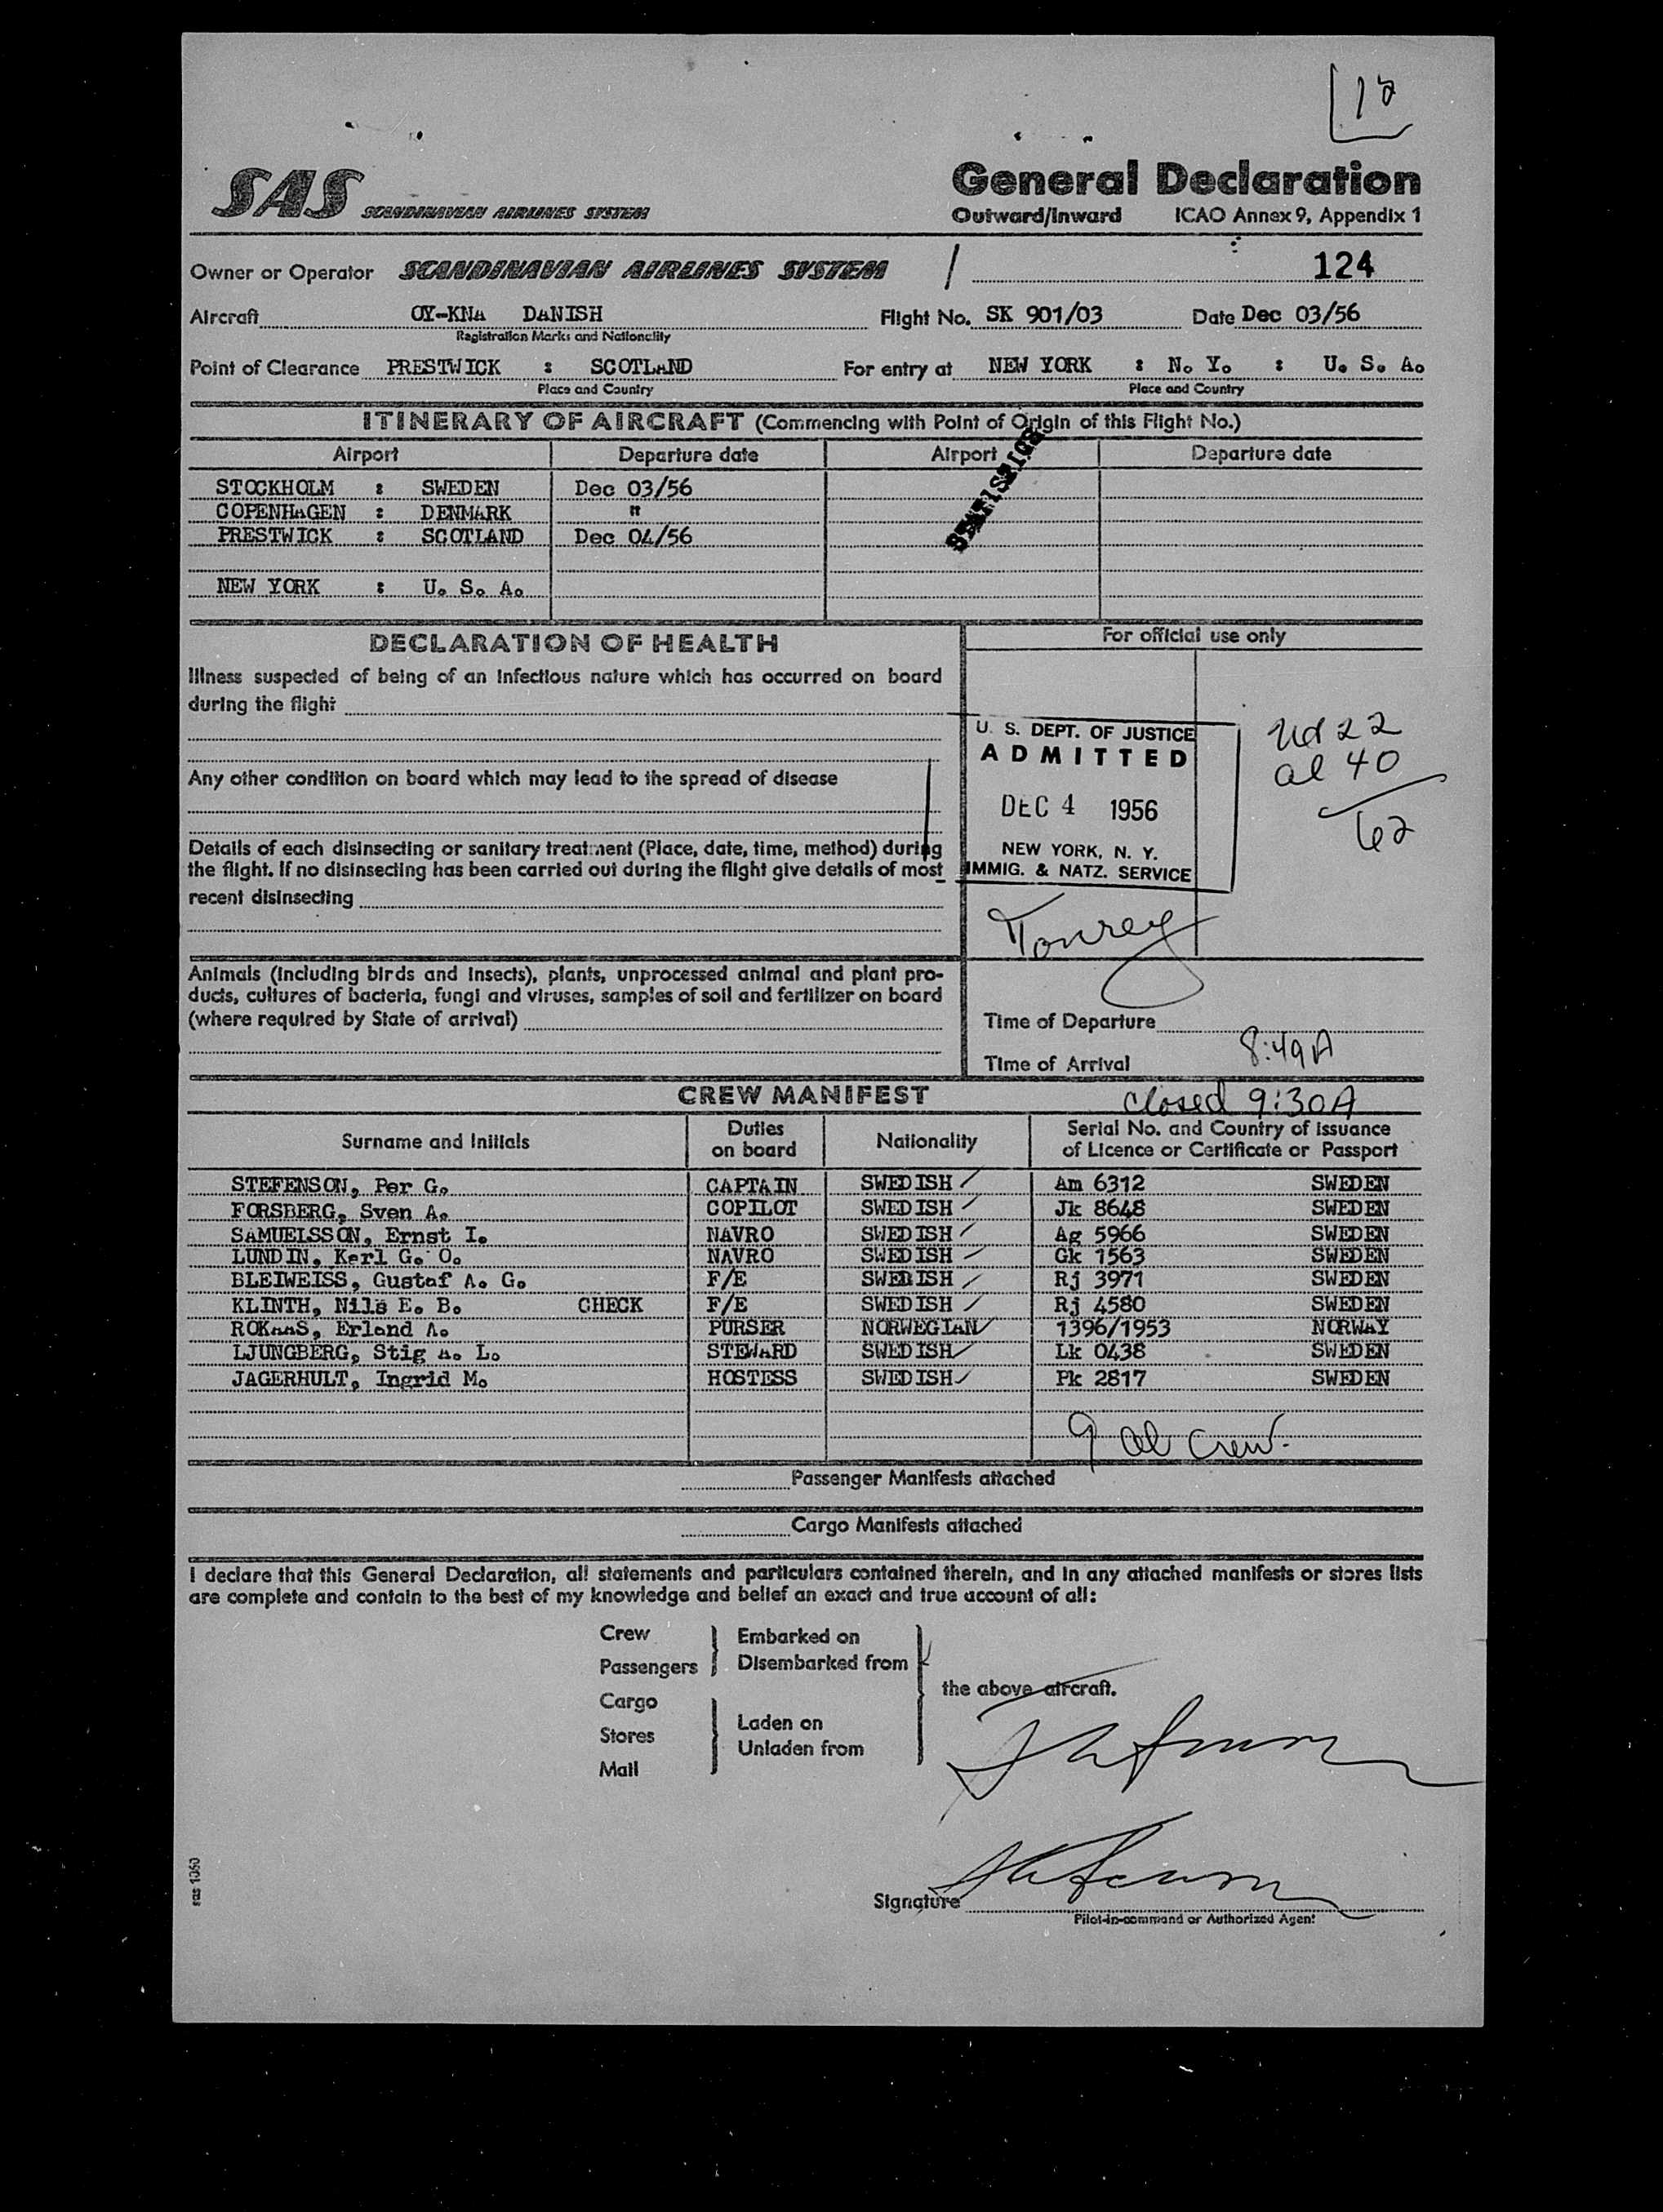 12
SAS SCANDINAVIAN AIRLINES SYSTEM
General Declaration
Outward/Inward ICAO Annex 9, Appendix 1
Owner or Operator SCANDINAVIAN AIRLINES SYSTEM / 124
Aircraft OY-KNA DANISH Flight No. SK 901/03 Date Dec 03/56
Registration Marks and Nationality
Point of Clearance PRESTWICK : SCOTLAND For entry at NEW YORK : N. Y. : U. S. A.
Place and Country Place and Country
ITINERARY OF AIRCRAFT (Commencing with Point of Origin of this Flight No.)
Airport Departure date Airport Departure date
STATISTICS
STOCKHOLM : SWEDEN Dec 03/56
COPENHAGEN : DENMARK "
PRESTWICK : SCOTLAND Dec 04/56
NEW YORK : U. S. A.
DECLARATION OF HEALTH
For official use only
Illness suspected of being of an infectious nature which has occurred on board
during the flight
Any other condition on board which may lead to the spread of disease
Details of each disinsecting or sanitary treatment (Place, date, time, method) during
the flight. If no disinsecting has been carried out during the flight give details of most
recent disinsecting
U. S. DEPT. OF JUSTICE
ADMITTED
DEC 4 1956
NEW YORK, N. Y.
IMMIG. & NATZ. SERVICE
22
al 40
62
Animals (including birds and insects), plants, unprocessed animal and plant pro-
ducts, cultures of bacteria, fungi and viruses, samples of soil and fertilizer on board
(where required by State of arrival)
Time of Departure
Time of Arrival 8:49A
CREW MANIFEST
closed 9:30A
Surname and Initials Duties on board Nationality Serial No. and Country of Issuance of Licence or Certificate or Passport
STEFENSON, Per G. CAPTAIN SWEDISH Am 6312 SWEDEN
FORSBERG, Sven A. COPILOT SWEDISH Jk 8648 SWEDEN
SAMUELSSON, Ernst I. NAVRO SWEDISH Ag 5966 SWEDEN
LUNDIN, Karl G. O. NAVRO SWEDISH Gk 1563 SWEDEN
BLEIWEISS, Gustaf A. G. F/E SWEDISH Rj 3971 SWEDEN
KLINTH, Nils E. B. CHECK F/E SWEDISH Rj 4580 SWEDEN
ROKAAS, Erland A. PURSER NORWEGIAN 1396/1953 NORWAY
LJUNGBERG, Stig A. L. STEWARD SWEDISH Lk 0438 SWEDEN
JAGERHULT, Ingrid M. HOSTESS SWEDISH Pk 2817 SWEDEN
9 al crew.
Passenger Manifests attached
Cargo Manifests attached
I declare that this General Declaration, all statements and particulars contained therein, and in any attached manifests or stores lists
are complete and contain to the best of my knowledge and belief an exact and true account of all:
Crew
Passengers
Embarked on
Disembarked from
the above aircraft.
Cargo
Stores
Mail
Laden on
Unladen from
Signature
Pilot-in-command or Authorized Agent
sas 1060